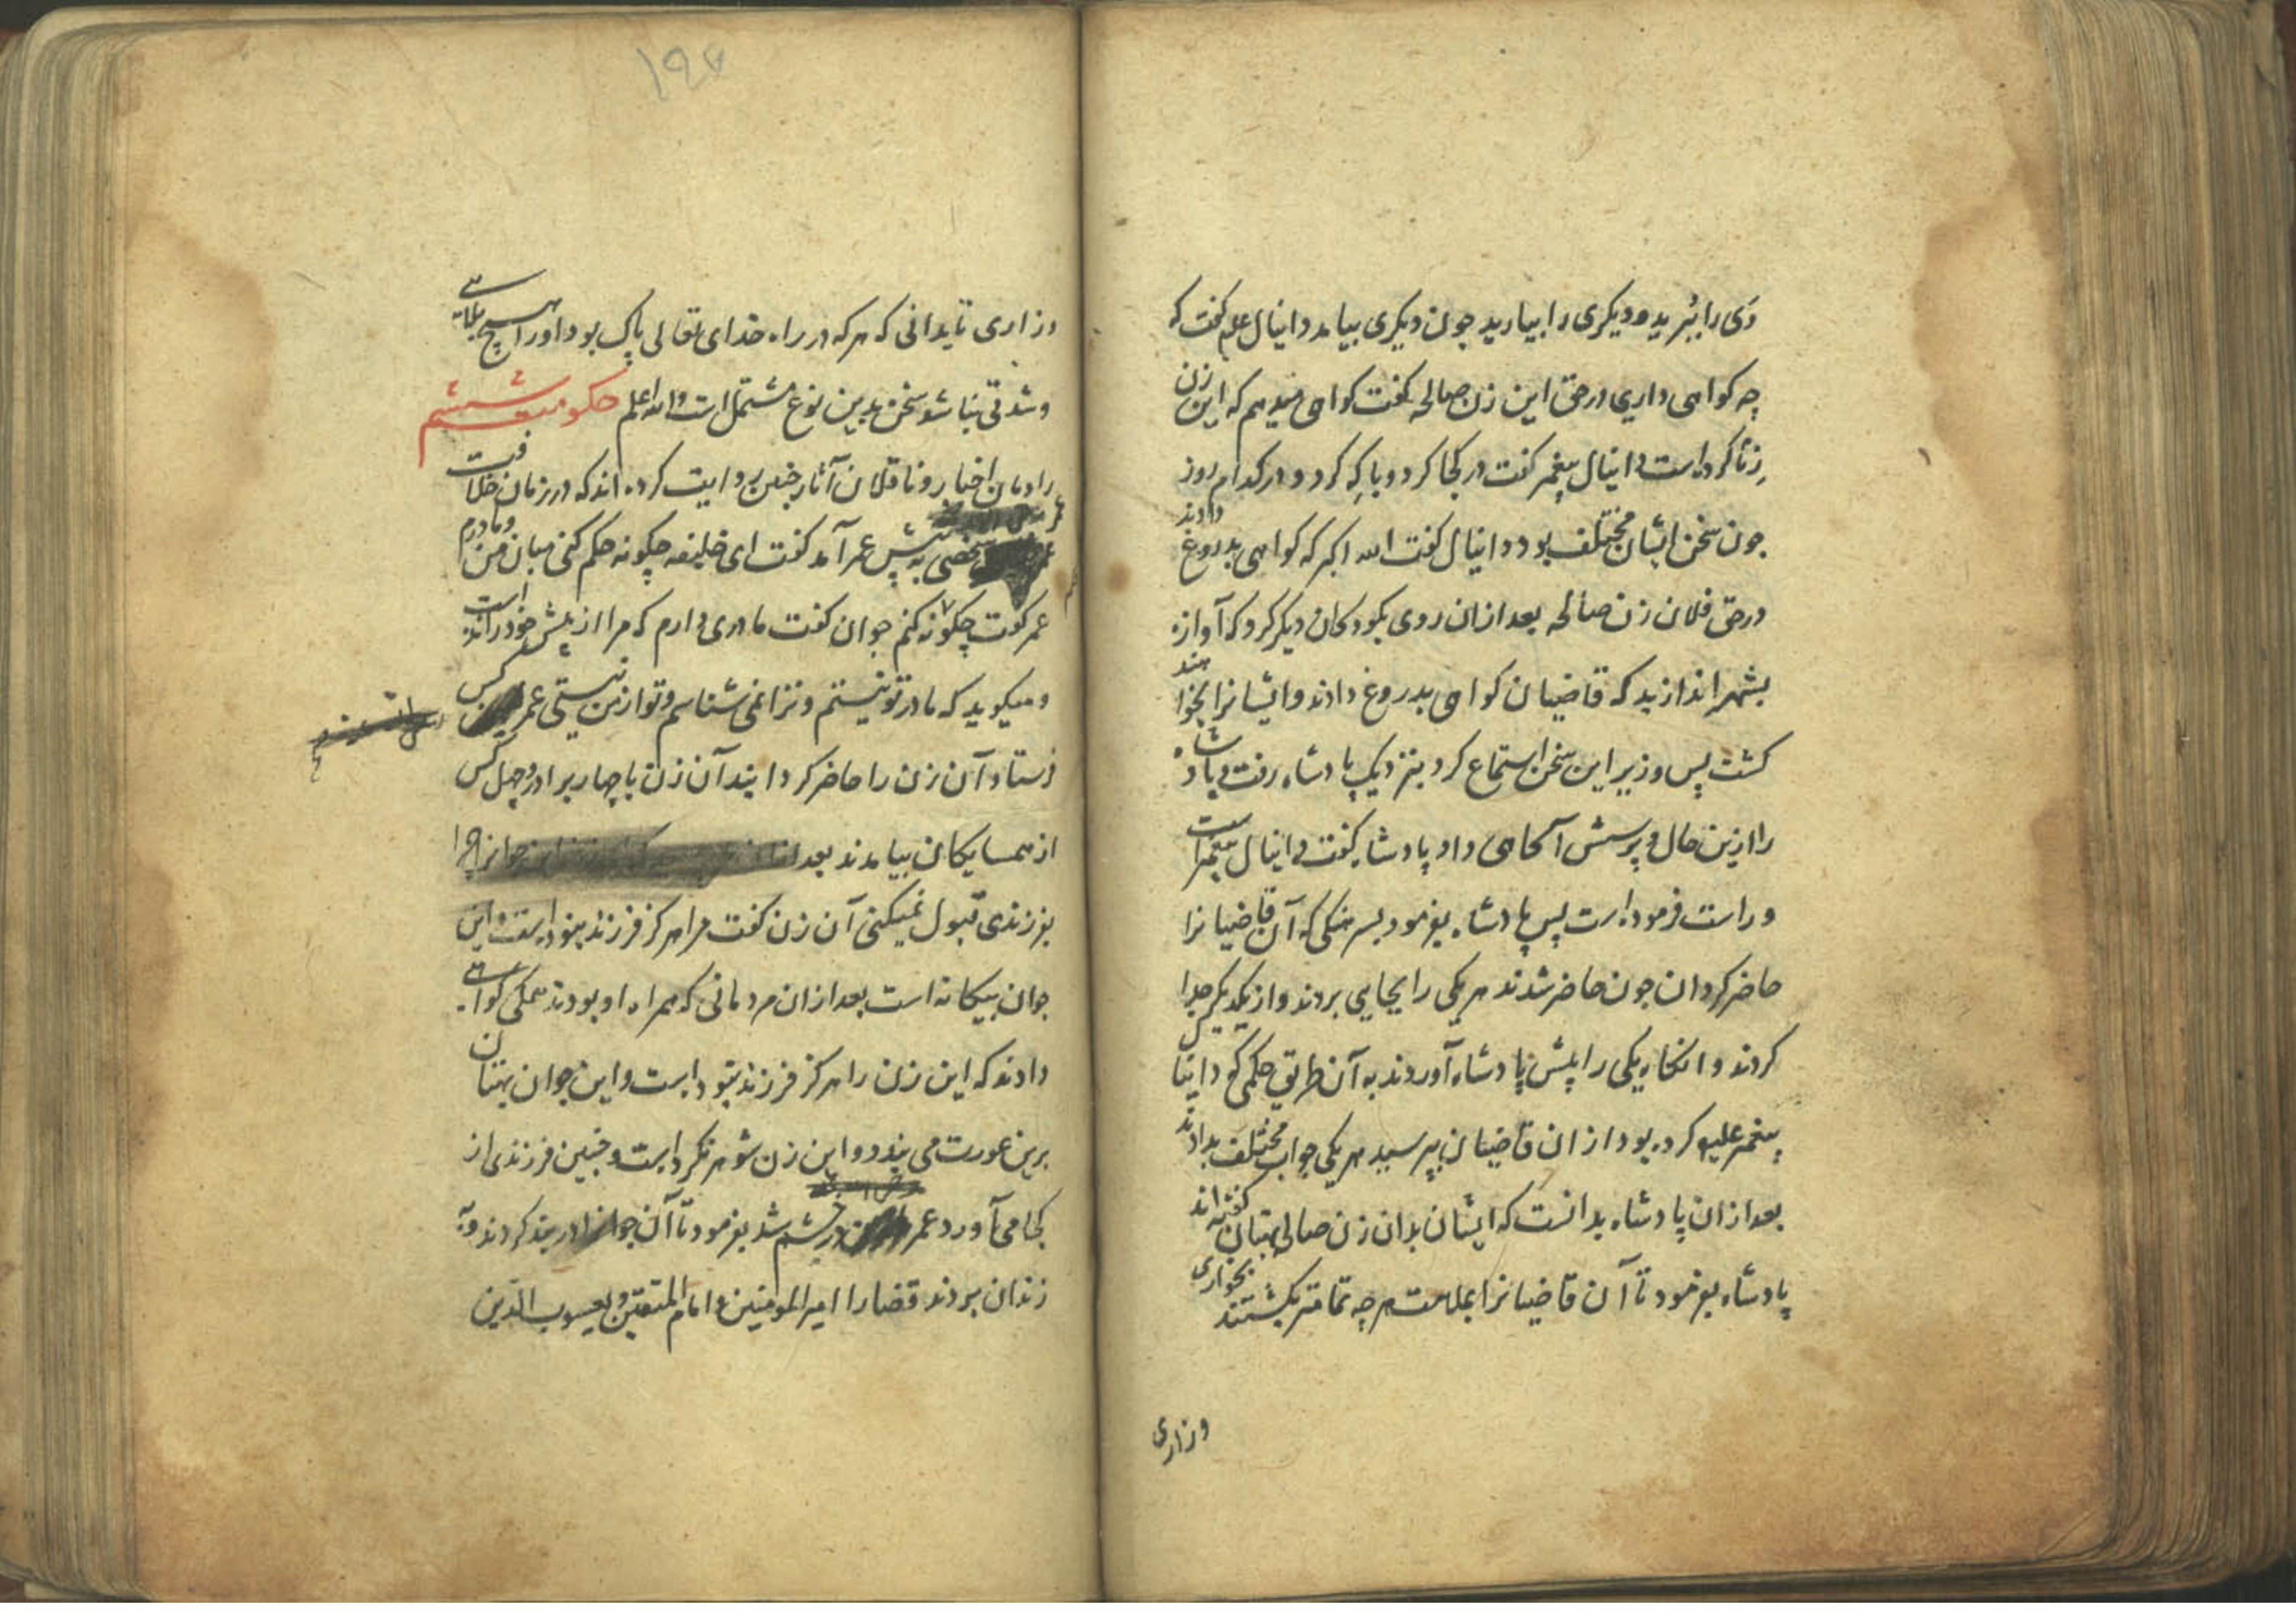 وی را ببرید و دیگری را بیارید چون دیگری بیامد دانیال علم کفت که
چه کواهی داری در حق این زن صالحه کفت کواهی میدهم که این زن
زنا کرده است دانیال پیغمبر کفت در کجا کرد و با که کرد و در کدام روز
چون سخن ایشان مختلف بود دانیال کفت الله اکبر که کواهی بدروغ دادند
در حق فلان زن صالحه بعد ازان روی بکودکان دیکر کرد که آوازه
بشهر اندازید که قاضیان کواهی بدروغ دادند و ایشانرا بخواهند
کشت پس وزیر این سخن استماع کرد بنزدیک پادشاه رفت و پادشاه
را ازین حال و پرسش آکاهی داد پادشاه کفت دانیال پیغمبر است
و راست فرموده است پس پادشاه بفرمود بسرهنکی که آن قاضیانرا
حاضر کردان چون حاضر شدند هر یکی را بجایی بردند و از یکدیکر جدا
کردند و انکاه یکی را پیش پادشاه آوردند به آن طریق حکمی که دانیال
پیغمبر علیه کرده بود ازان قاضیان بپرسید هر یکی جواب مختلف بدادند
بعد ازان پادشاه بدانست که ایشان بدان زن صالحه بهتان کفته اند
پادشاه بفرمود تا آن قاضیانرا بملامت هر چه تمامتر بکشتند بخواری
وزاری
۱۹۷
وزاری تا بدانی که هر که در راه خدای تعالی پاک بود او را هیچ بلائی
و شدتی نباشد سخن بدین نوع مشتمل است والله اعلم حکومت ششم
راویان اخبار و ناقلان آثار چنین روایت کرده اند که در زمان خلافت
عمر شخصی به پیش عمر آمد کفت ای خلیفه چکونه حکم کنی میان من و مادرم
عمر کفت چکونه کنم جوان کفت مادری دارم که مرا از پیش خود رانده است
و میکوید که مادر تو نیستم و ترا نمی شناسم و تو از من نیستی عمر کس
فرستاد آن زن را حاضر کردانیند آن زن با چهار برادر و چهل کس
از همسایکان بیامدند بعد جوانرا چرا
بفرزندی قبول نمیکنی آن زن کفت مرا هرکز فرزند نبوده است و این
جوان بیکانه است بعد ازان مردمانی که همراه او بودند همکی کواهی
دادند که این زن را هرکز فرزند نبوده است و این جوان بهتان
برین عورت می بندد و این زن شوهر نکرده است و چنین فرزندی از
کجا می آورد عمر در خشم شد بفرمود تا آن جوانرا در بند کردند و به
زندان بردند قضارا امیر المومنین و امام المتقین و یعسوب الدین